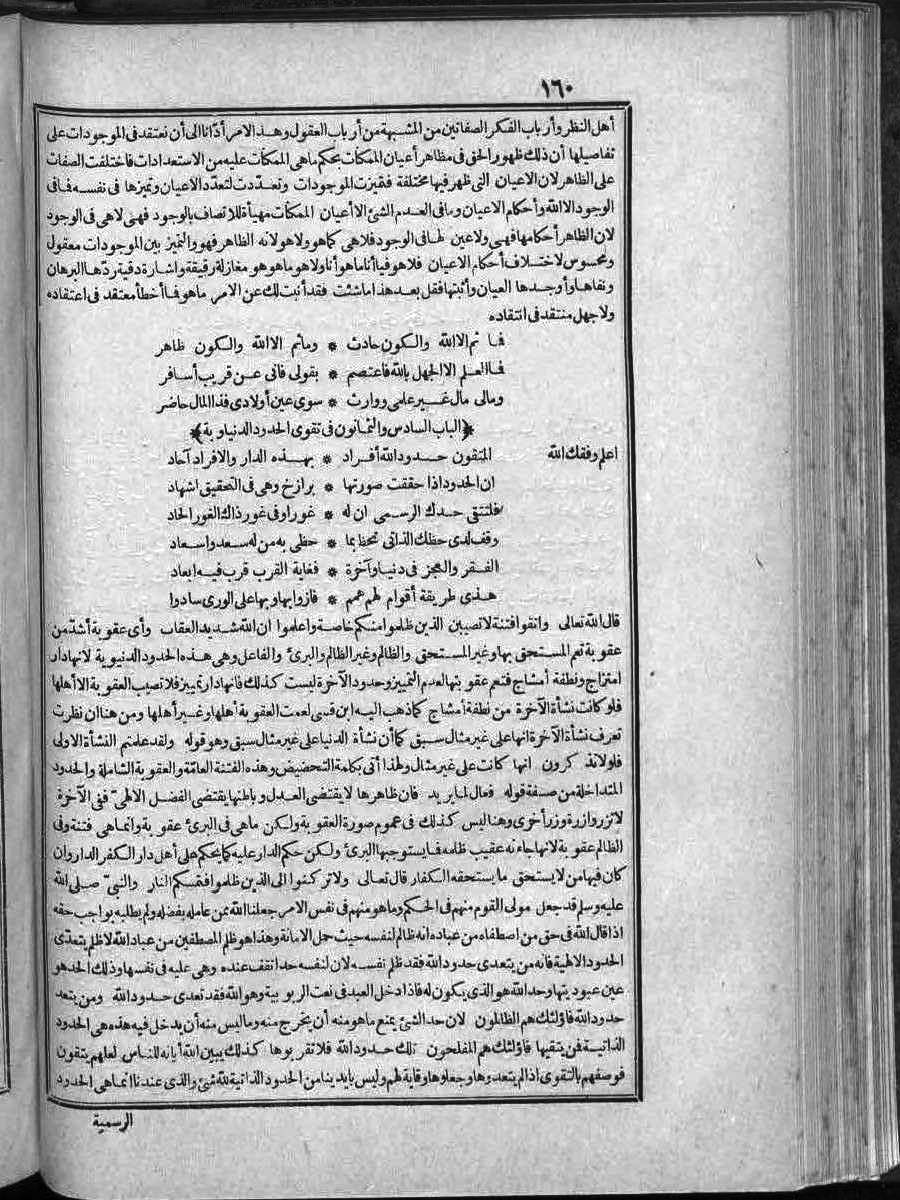 ١٦٠
أهل النظر وأرباب الفكر الصفاتين من المشبهة من أرباب العقول وهذا الامر أدّانا الى أن نعتقد فى الموجودات على
تفاصيلها أن ذلك ظهور الحق فى مظاهر أعيان الممكنات بحكم ما هى الممكنات عليه من الاستعدادات فاختلفت الصفات
على الظاهر لان الاعيان التى ظهر فيها مختلفة فتميزت الموجودات وتعدّدت لتعدّد الاعيان وتميزها فى نفسه فما فى
الوجود الا الله وأحكام الاعيان وما فى العدم الشئ الا أعيان الممكنات مهيأة للاتصاف بالوجود فهى لا هى فى الوجود
لان الظاهر أحكامها فهى ولا عين لها فى الوجود فلا هى كما هو ولا هو لانه الظاهر فهو والتميز بين الموجودات معقول
ومحسوس لاختلاف أحكام الاعيان فلا هو فيا أنا ما هو أنا ولا هو ما هو هو مغازلة رقيقة واشارة دقيقة ردّها البرهان
ونفاها وأوجدها العيان وأثبتها فقل بعد هذا ما شئت فقد أبنت لك عن الامر ما هو فما أخطأ معتقد فى اعتقاده
ولا جهل منتقد فى انتقاده
فما ثم الا الله والكون حادث * وما ثم الا الله والكون ظاهر
فما العلم الا الجهل بالله فاعتصم * بقولى فانى عن قريب أسافر
وما لى مال غير علمى ووارث * سوى عين أولادى فذا المال حاضر
﴿الباب السادس والثمانون فى تقوى الحدود الدنياوية﴾
اعلم وفقك الله المتقون حدود الله أفراد * بهذه الدار والافراد آحاد
ان الحدود اذا حققت صورتها * برازخ وهى فى التحقيق اشهاد
فلتتقى حدك الرسمى ان له * غورا وفى غور ذاك الغور الحاد
وقف لدى حظك الذاتى تحظ بما * حظى به من له سعد واسعاد
الفقر والعجز فى دنيا وآخرة * فغاية القرب قرب فيه ابعاد
هذى طريقة أقوام لهم همم * فازوا بها وبها على الورى سادوا
قال الله تعالى واتقوا فتنة لا تصيبن الذين ظلموا منكم خاصة واعلموا ان الله شديد العقاب وأى عقوبة أشدّ من
عقوبة تعم المستحق بها وغير المستحق والظالم وغير الظالم والبرئ والفاعل وهى هذه الحدود الدنيوية لانها دار
امتزاج ونطفة أمشاج فتعم عقوبتها لعدم التمييز وحدود الآخرة ليست كذلك فانها دار تمييز فلا تصيب العقوبة الا أهلها
فلو كانت نشأة الآخرة من نطفة أمشاج كما ذهب اليه ابن قسى لعمت العقوبة أهلها وغير أهلها ومن هنا ان نظرت
تعرف نشأة الآخرة انها على غير مثال سبق كما أن نشأة الدنيا على غير مثال سبق وهو قوله ولقد علمتم النشأة الاولى
فلولا تذكرون انها كانت على غير مثال ولهذا أتى بكلمة التحضيض وهذه الفتنة العامّة والعقوبة الشاملة والحدود
المتداخلة من صفة قوله فعال لما يريد فان ظاهرها لا يقتضى العدل وباطنها يقتضى الفضل الالهىّ ففى الآخرة
لا تزر وازرة وزر أخرى وهنا ليس كذلك فى عموم صورة العقوبة ولكن ما هى فى البرئ عقوبة وانما هى فتنة وفى
الظالم عقوبة لانها جاءته عقيب ظلمه فما يستوجبها البرئ ولكن حكم الدار عليه كما يحكم على أهل دار الكفر الدار وان
كان فيها من لا يستحق ما يستحقه الكفار قال تعالى ولا تركنوا الى الذين ظلموا فتمسكم النار والنبىّ صلى الله
عليه وسلم قد جعل مولى القوم منهم فى الحكم وما هو منهم فى نفس الامر جعلنا الله ممن عامله بفضله ولم يطلبه بواجب حقه
اذا قال الله فى حق من اصطفاه من عباده انه ظالم لنفسه حيث حمل الامانة وهذا هو ظلم المصطفين من عباد الله لا ظلم يتعدّى
الحدود الالهية فانه من يتعدى حدود الله فقد ظلم نفسه لان لنفسه حدا تقف عنده وهى عليه فى نفسها وذلك الحد هو
عين عبوديتها وحد الله هو الذى يكون له فاذا دخل العبد فى نعت الربوبية وهو الله فقد تعدى حدود الله ومن يتعد
حدود الله فاؤلئك هم الظالمون لان حد الشئ يمنع ما هو منه أن يخرج منه وما ليس منه أن يدخل فيه هذه هى الحدود
الذاتية فمن يتقيها فاؤلئك هم المفلحون تلك حدود الله فلا تقربوها كذلك يبين الله آياته للناس لعلهم يتقون
فوصفهم بالتقوى اذا لم يتعدوها وجعلوها وقاية لهم وليس بايدينا من الحدود الذاتية لله شئ والذى عندنا انما هى الحدود
الرسمية